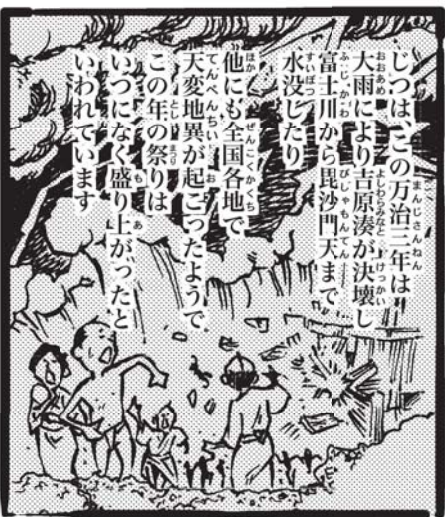 じつは、この万治三年は
大雨により吉原湊が決壊し
富士川から毘沙門天まで
水没したり
他にも全国各地で
天変地異が起こったようで
この年の祭りは
いつになく盛り上がったと
いわれています